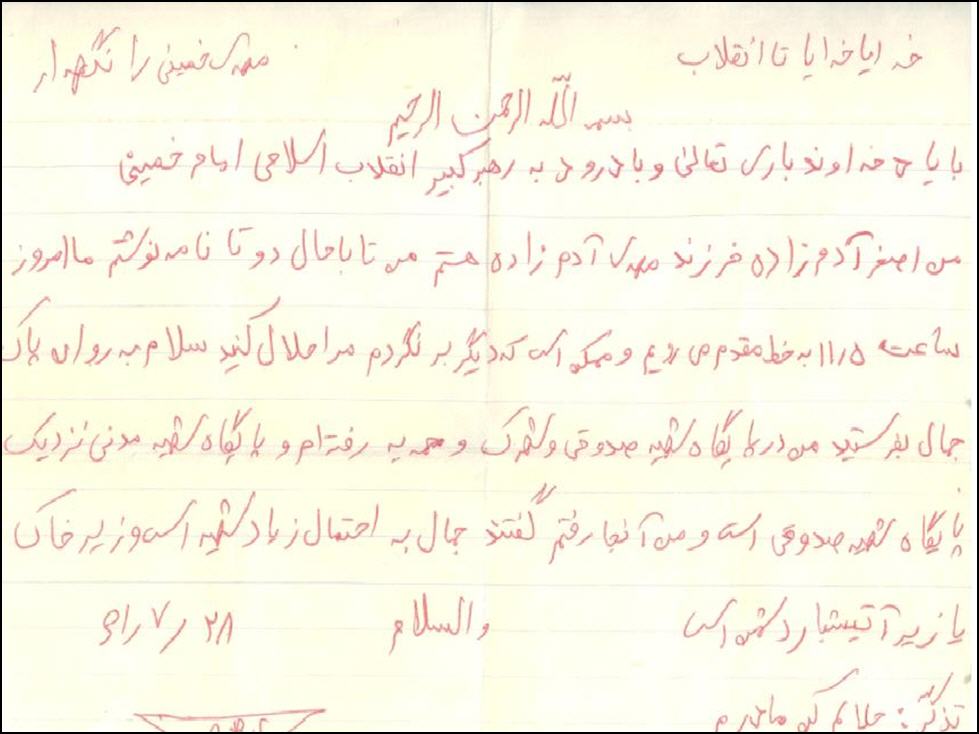 خدایا خدایا تا انقلاب مهدی خمینی را نگهدار
بسم الله الرحمن الرحیم
با یاد خداوند باری تعالی و با درود به رهبر کبیر انقلاب اسلامی امام خمینی
من اصغر آدم زاده فرزند مهدی آدم زاده هستم من تا بحال دو تا نامه نوشتم ما امروز
ساعت ۱۱/۵ به خط مقدم می رویم و ممکن است که دیگر بر نگردم مرا حلال کنید سلام به روان پاک
جمال بفرستید من در پایگاه شهید صدوقی و شهرک و حمیدیه رفته ام و پایگاه شهید مدنی نزدیک
پایگاه شهید صدوقی است و من آنجا رفتم گفتند جمال به احتمال زیاد شهید است و زیر خاک
یا زیر آتیشبار دشمن است والسلام ۲۸/۷/
تذکر: حلالم کن مادرم